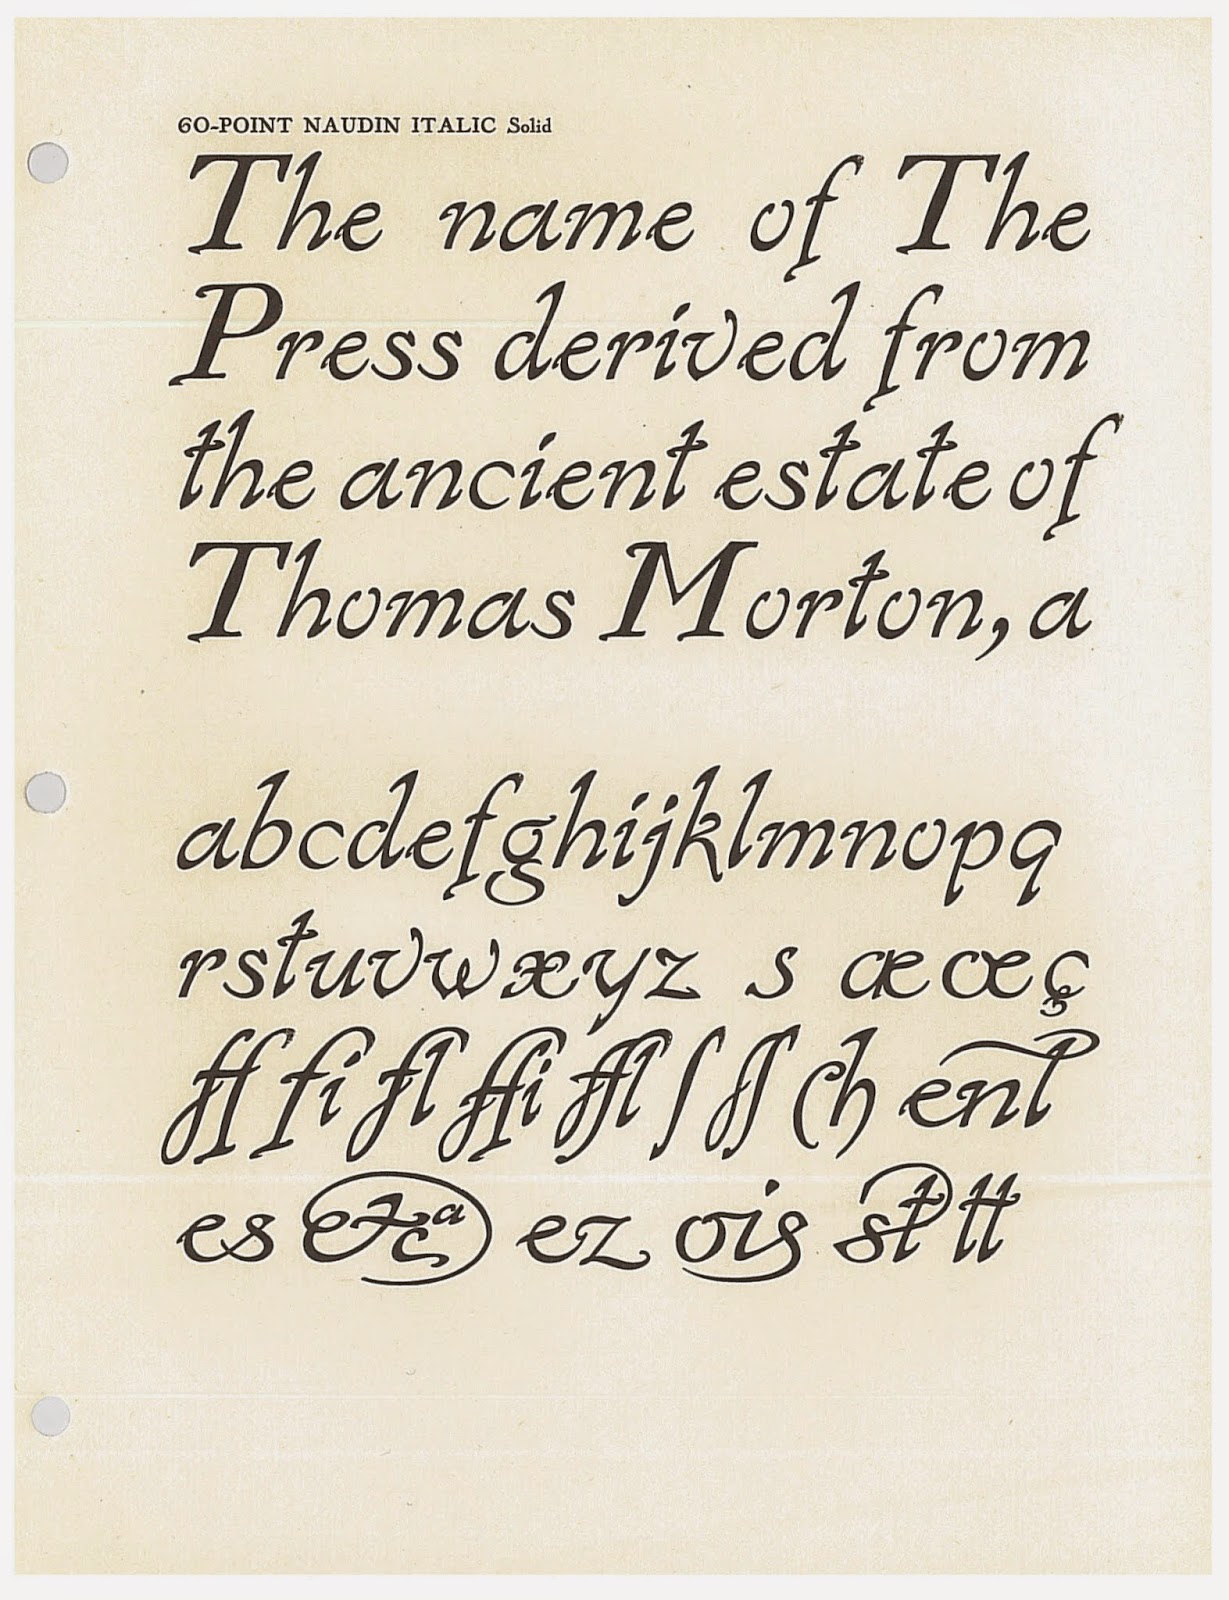 60-POINT NAUDIN ITALIC Solid
The name of The
Press derived from
the ancient estate of
Thomas Morton, a
abcdefghijklmnopq
rstuvwxyz s æœç
ff fi fl ffi ffl ſ ſſ ch ent
es &ca ez ois st tt